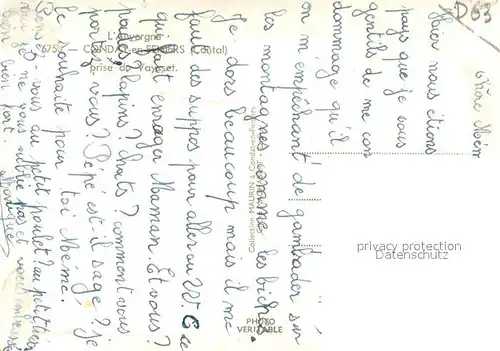 D 63
Chère Mém
Hier nous étions
pays que je vous
gentils de me con
dommage qu'il
on m'empêchant de gambader sur
les montagnes comme les biches.
Je dors beaucoup mais il me
faut des suppos pour aller au W.C. ce
qui fait enrager Maman. Et vous?
lapins? chats? comment vous
portez vous? Pépé est-il sage? je
le souhaite pour toi Mémé.
vous au petit poulet? au petit
ne vous oublie pas et vous embrasse
bien fort.
Monique
L'Auvergne
6759 CONDAT-en-FENIERS (Cantal)
prise du Vaysset.
Collection MAURIN à Condat-en-Feniers
PHOTO
VERITABLE
privacy protection
Datenschutz